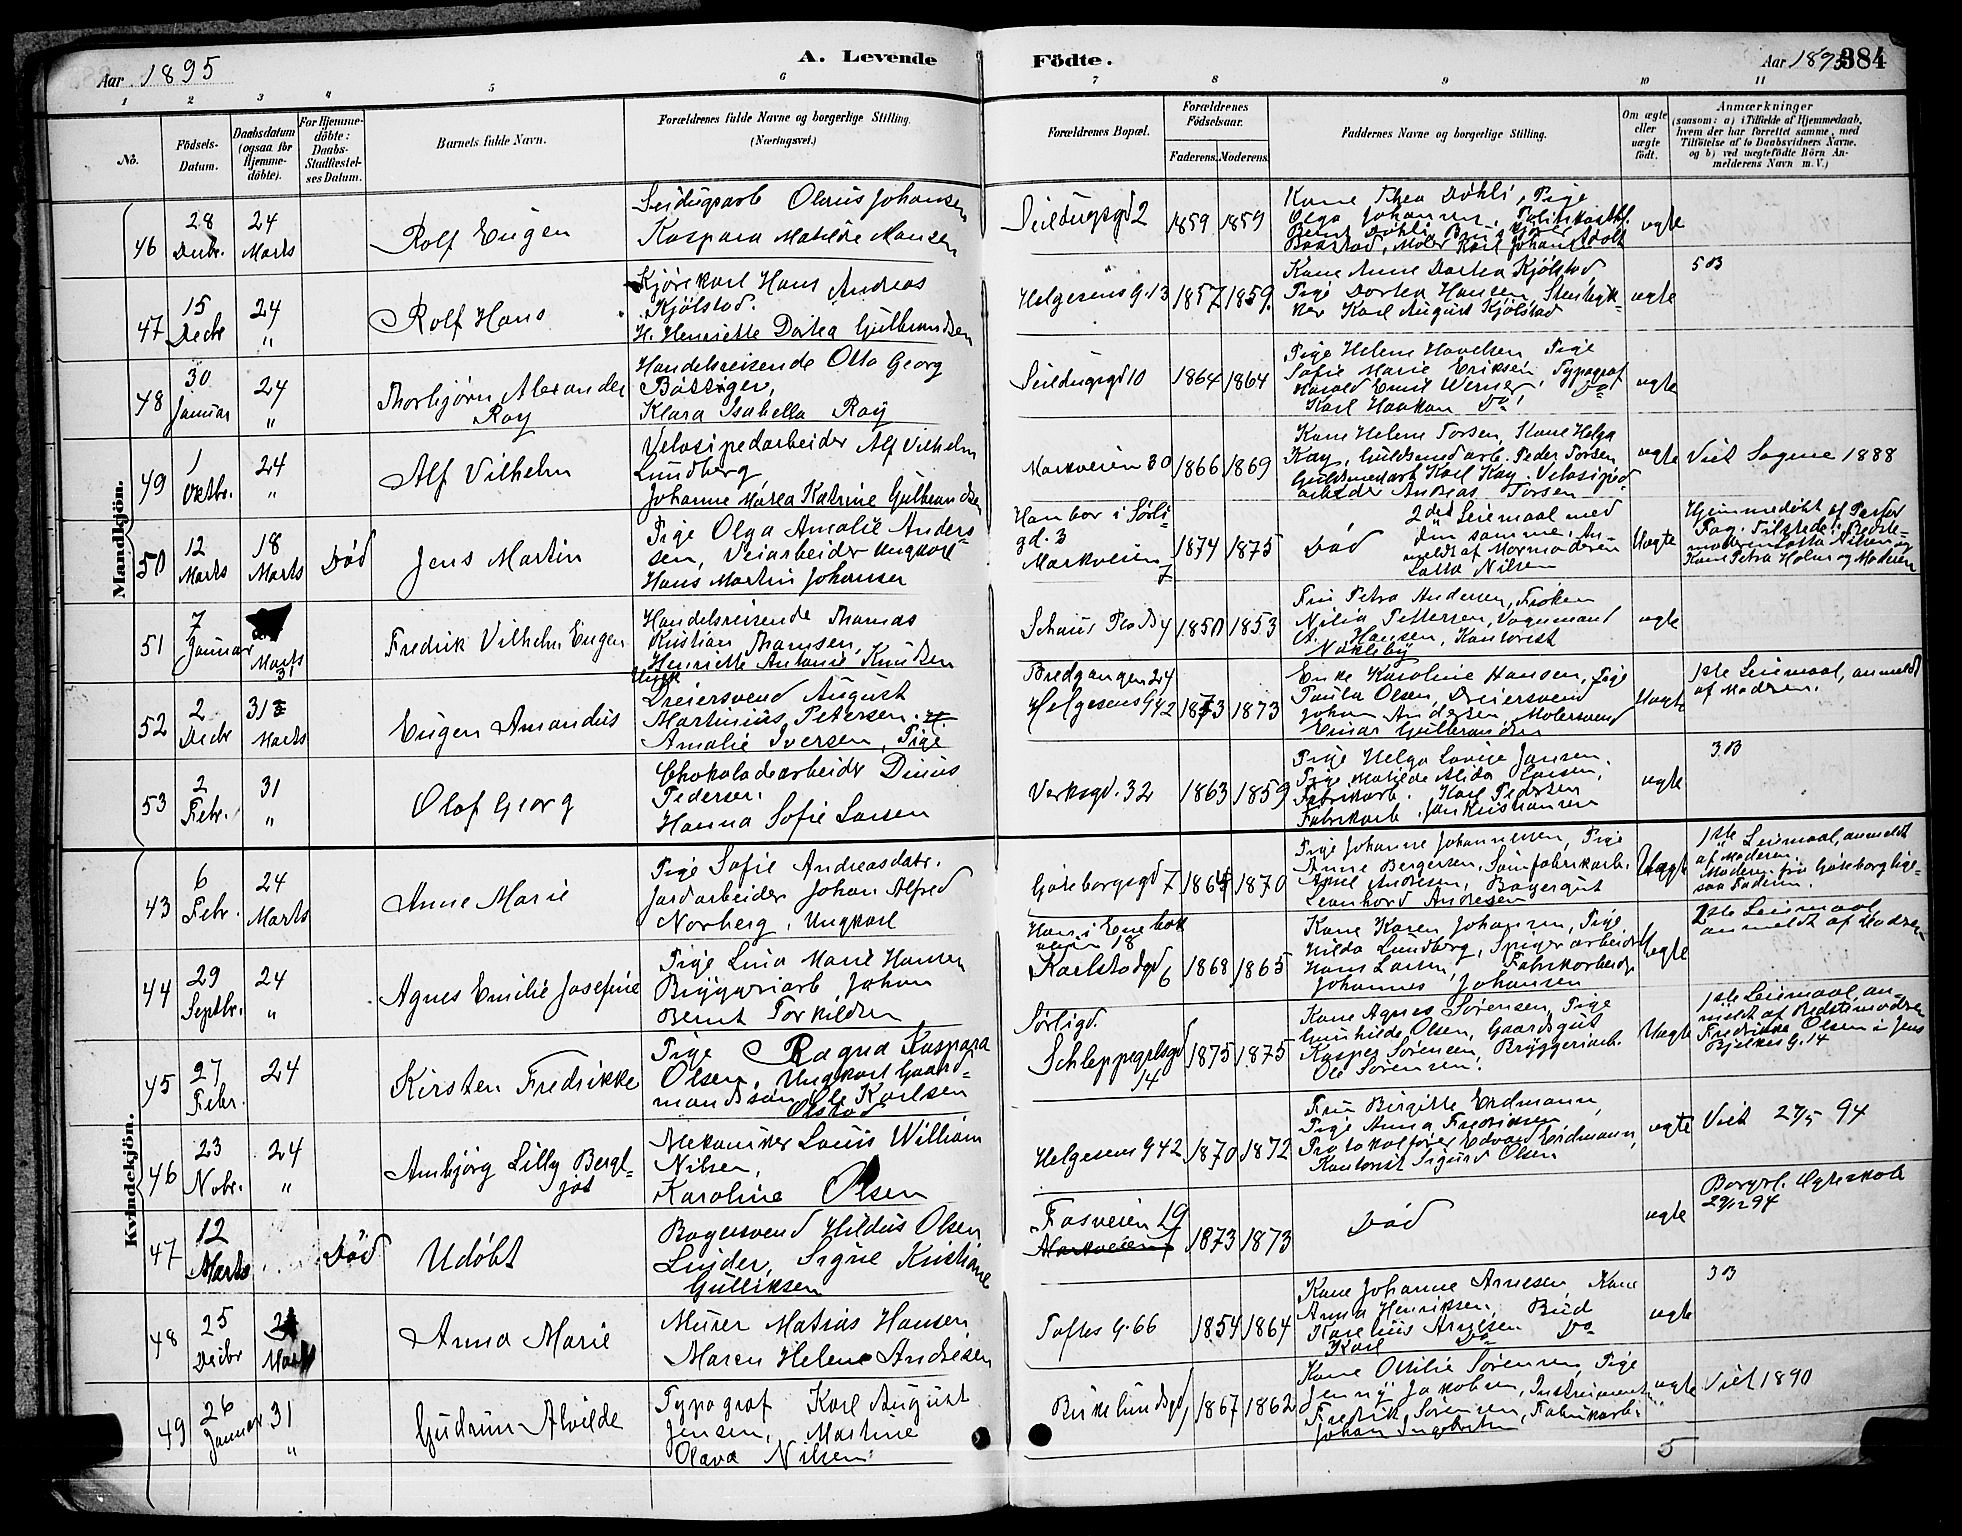 Aar 1895
A. Levende
Födte.
Aar 1895
384
1
2
3
4
5
6
7
8
9
10
11
No.
Födsels-
Datum.
Daabsdatum
(ogsaa for
Hjemme-
döbte).
For Hjemme-
döbte:
Daabs-
Stadfæstel-
ses Datum.
Barnets fulde Navn.
Forældrenes fulde Navne og borgerlige Stilling.
(Næringsvei.)
Forældrenes Bopæl.
Forældrenes
Födselsaar.
Faderens.
Moderens.
Faddernes Navne og borgerlige Stilling.
Om ægte
eller
uægte
født.
Anmærkninger
(saasom: a) i Tilfælde af Hjemmedaab,
hvem der har forrettet samme, med
Tilföielse af to Daabsvidners Navne,
og b) ved uægtefödte Börn An-
melderens Navn m. V.)
Mandkjön.
46
28
Decbr.
24
Marts
Rolf Eugen
Seildugsarb Olaus Johansen
Kaspara Matilde Hansen
Seildugsgd 2
1859
1859
Kone Thea Döhli, Pige
Olga Johansen, Politikonst.
Bernt Döhli,
Baastad, Maler Karl Johan Adolf
ægte
47
15
Decbr
24
"
Rolf Hans
Kjörekarl Hans Andreas
Kjölstad.
H. Henriette Dortea Gulbrandsen
Helgesens G. 13
1857
1859
Kone Anne Dortea Kjölstad
Pige Dortea Hansen, Stenhyk-
ker Karl August Kjölstad
ægte
5 B
48
30
Januar
24
"
Thorbjörn Alexander
Roy
Handelsreisende Otto Georg
Böttiger,
Klara Isabella Roy
Seildugsgd 10
1864
1864
Pige Helene Havelsen, Pige
Sofie Marie Eriksen, Typograf
Harald Emil Werner, Do
Karl Haakon Do
ægte
49
1
Oktbr.
24
"
Alf Vilhelm
Velosipedarbeider Alf Vilhelm
Lundberg
Johanne Martea Katrine Gulbrandsen
Markveien 30
1866
1869
Kone Helene Torsen, Kone Helga
Kay, Guldsmedarb. Peder Torsen
Guldsmedarb Karl Kay, Velosiped
arbeider Andreas Torsen
ægte
Viet Sogne 1888
50
12
Marts
18
Marts
Död
Jens Martin
Pige Olga Amalie Anders-
sen, Veiarbeider Ungkarl
Hans Martin Johansen
Han bor i Sörli-
gd. 3
Markveien 7
1874
1875
Död
2det Leiemaal med
den samme. An-
meldt af Mormoderen
Lotta Nilsen
Uægte
Hjemmedöbt af Pastor
Fag. Tilstede: Bedste-
moderen Lotta Nilsen og
Kone Petra Holm og Moderen
51
7
Januar
Marts
31
Fredrik Vilhelm Eugen
Handelsreisende Thomas
Kristian Thomsen,
Henriette Antonie Knudsen
Schous Plads 4
1850
1853
Fru Petra Andersen, Fröken
Nilia Pettersen, Vognmand
A. Hansen, Kontorist
Nökleby
ægte
52
2
Decbr
31
Marts
Eugen Amandus
Ungk
Dreiersvend August
Martinius Petersen.
Amalie Iversen, Pige
Bredgangen 24
Helgesens G 42
1873
1873
Enke Karoline Hansen, Pige
Paula Olsen, Dreiersvend
Johan Andersen, Malersvend
Einar Gulbrandsen
Uægte
1ste Leiemaal, anmeldt
af Moderen.
53
2
Febr.
31
"
Olaf Georg
Chokoladearbeider Dinus
Pedersen.
Hanna Sofie Larsen
Verksgd. 32
1863
1859
Pige Helga Lovise Jansen.
Pige Matilde Alida Larsen,
Fabrikarb. Karl Pedersen
Fabrikarb. Jan Kristiansen
ægte
3 B
Kvindekjön.
43
6
Febr.
24
Marts
Anne Marie
Pige Sofie Andreasdatr.
Jordarbeider Johan Alfred
Norberg, Ungkarl
Göteborgsgd 7
1864
1870
Pige Johanne Johannesen, Pige
Anne Bergersen, Sömfabrikarb.
Emil Andresen, Bagergut
Leonhard Andresen
Uægte
1ste Leiemaal, anmeldt
af Moderen.
Moderen fra Göteborg lige-
saa Faderen.
44
29
Septbr.
24
"
Agnes Emilie Josefine
Pige Lina Marie Hansen
Bryggeriarb Johan
Bernt Torkildsen
Han i Enebak
veien 18
Karlstadgd 6
1868
1865
Kone Karen Johansen, Pige
Hilda Lundberg, Spigerarbeider
Hans Larsen, Fabrikarbeider
Johannes Johansen
Uægte
2ste Leiemaal
anmeldt af Moderen
45
27
Febr.
24
Kirsten Fredrikke
Pige Ragna Kaspara
Olsen, Ungkarl Gaard-
mandssön Ole Karlsen
Olstad
Sörligd.
Schleppegrelsgd
14
1875
1875
Kone Agnes Sörensen, Pige
Gunhilde Olsen, Gaardsgut
Kasper Sörensen, Bryggeriarb.
Ole Sörensen.
Uægte
1ste Leiemaal, an-
meldt af Bedstemodren
Fredrikke Olsen i Jens
Bjelkes G. 14
46
23
Nobr.
24
"
Ambjörg Lilly Bergl-
jot
Mekaniker Louis William
Nilsen,
Karoline Olsen
Helgesens G 42
1870
1872
Fru Birgitte Erdmann,
Pige Anna Fredriksen
Protokolförer Edvard Erdmann,
Kontorist Sigurd Olsen
ægte
Viet 27/5 94
47
12
Marts
Död
Udöbt
Bagersvend Hildus Olsen
Linder, Signe Kristiane
Gulliksen
Fosveien 19
Markveien
1873
1873
Död
ægte
Borgerl. Ægteskab
29/12 94
48
25
Decbr
24
Marts
Anna Marie
Murer Matias Hansen
Maren Helene Andresen
Toftes G. 66
1854
1864
Kone Johanne Arnesen, Kone
Anna Henriksen, Bud
Karelius Arnesen Do
Karl Do
ægte
3 B
49
26
Januar
31
"
Gudrun Alvilde
Typograf Karl August
Jensen, Martine
Olava Nilsen
Birkelundsgd
1867
1862
Kone Otilie Sörensen, Pige
Jenny Jakobsen, Instrument
Fredrik Sörensen, Fabrikarb.
Johan Ingebretsen
ægte
Viet 1890
5